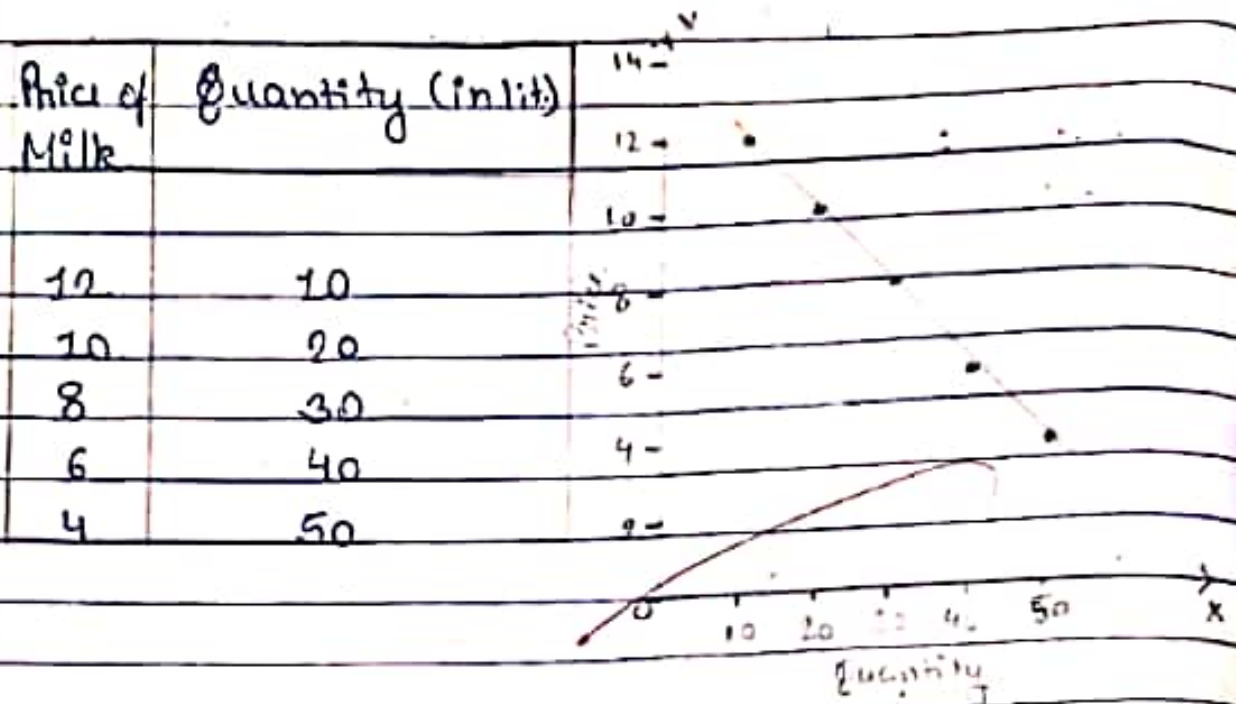 Price of Quantity (in lit.)
Milk
12 10
10 20
8 30
6 40
4 50
Y
14
12
10
8
6
4
2
Price
0 10 20 30 40 50 X
Quantity